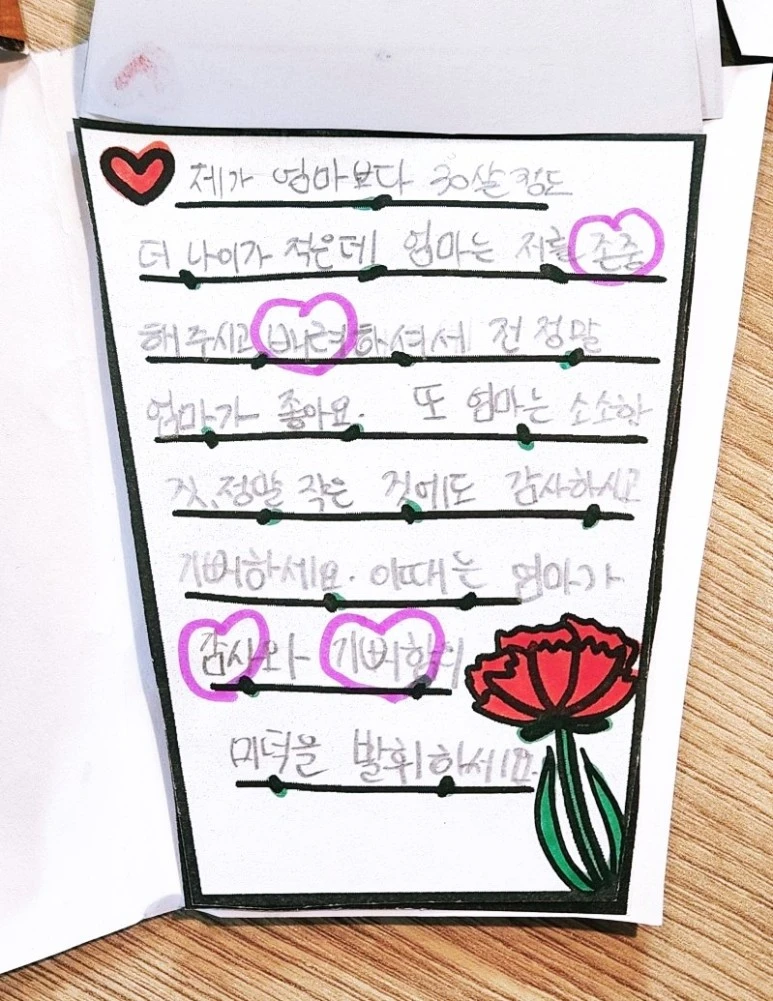 제가 엄마보다 30살정도
더 나이가 적은데 엄마는 저를 존중
해주시고 배려하셔서 전 정말
엄마가 좋아요. 또 엄마는 소소한
것, 정말 작은 것에도 감사하시고
기뻐하세요. 이때는 엄마가
감사와 기뻐함의
미덕을 발휘하세요.